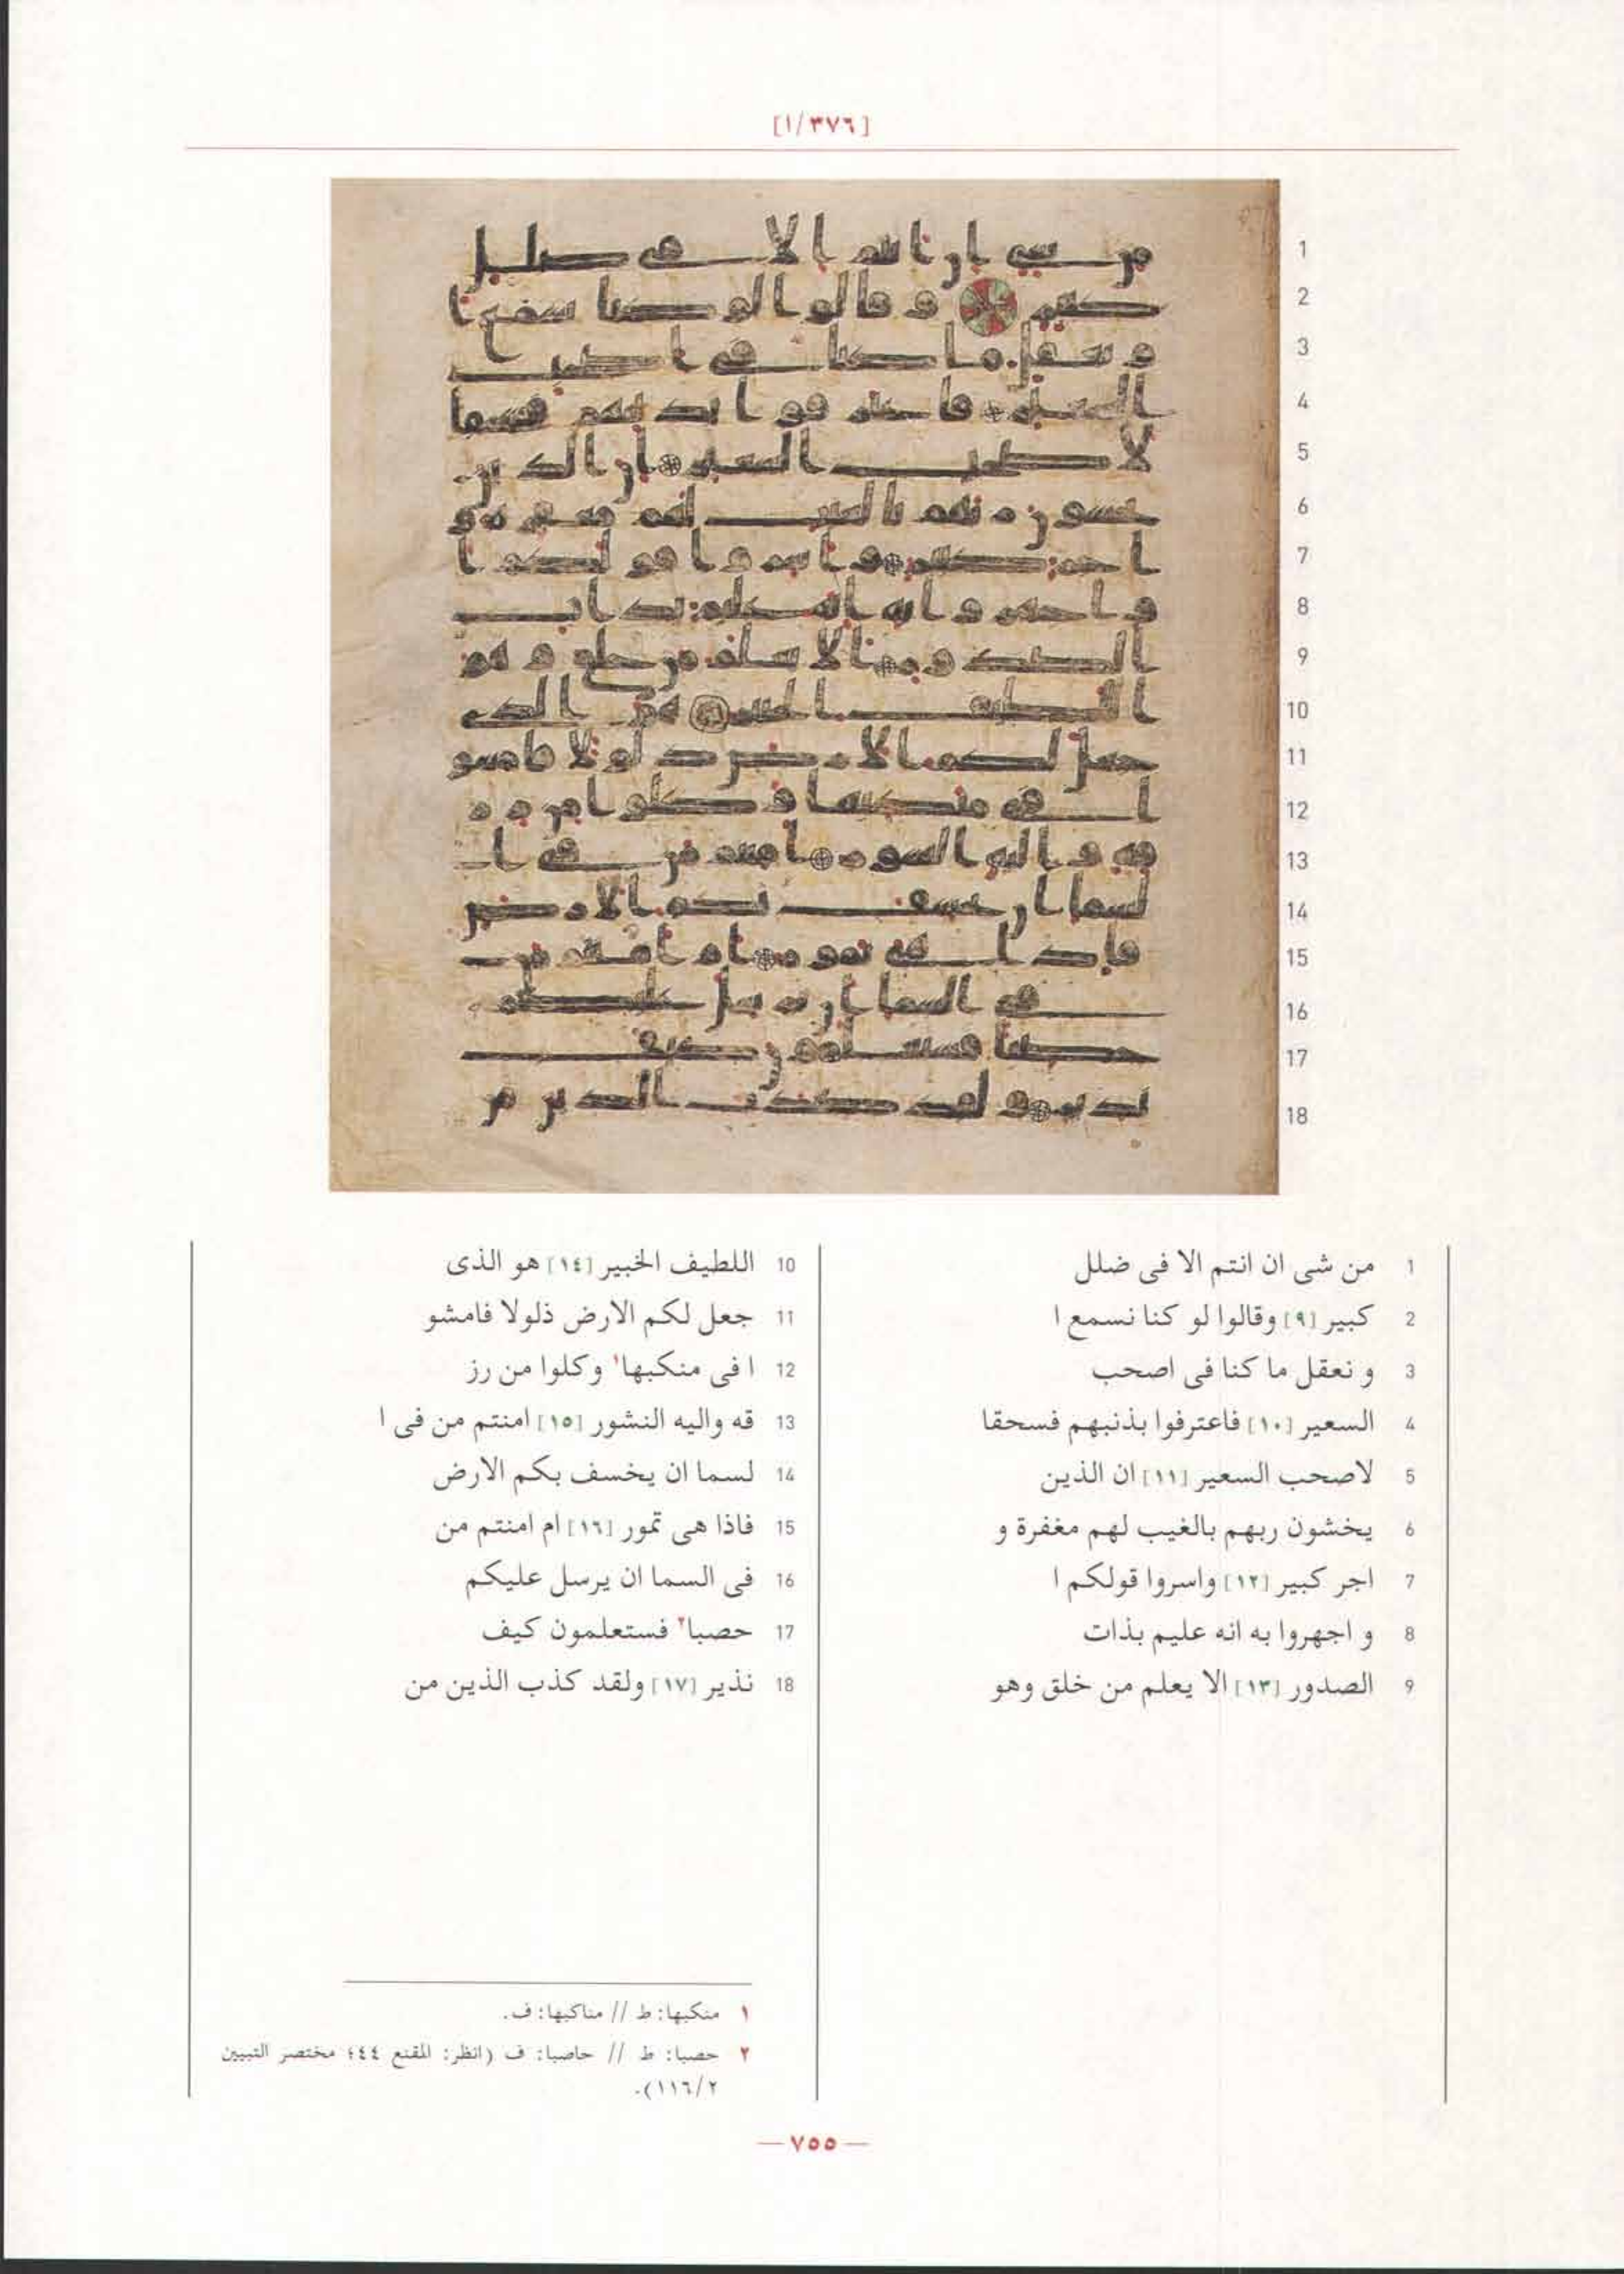 [١/٣٧٦]
1
2
3
4
5
6
7
8
9
10
11
12
13
14
15
16
17
18
1 من شى ان انتم الا فى ضلل
2 كبير [٩] وقالوا لو كنا نسمع ا
3 و نعقل ما كنا فى اصحب
4 السعير [١٠] فاعترفوا بذنبهم فسحقا
5 لاصحب السعير [١١] ان الذين
6 يخشون ربهم بالغيب لهم مغفرة و
7 اجر كبير [١٢] واسروا قولكم ا
8 و اجهروا به انه عليم بذات
9 الصدور [١٣] الا يعلم من خلق وهو
10 اللطيف الخبير [١٤] هو الذى
11 جعل لكم الارض ذلولا فامشو
12 ا فى منكبها١ وكلوا من رز
13 قه واليه النشور [١٥] امنتم من فى ا
14 لسما ان يخسف بكم الارض
15 فاذا هى تمور [١٦] ام امنتم من
16 فى السما ان يرسل عليكم
17 حصبا٢ فستعلمون كيف
18 نذير [١٧] ولقد كذب الذين من
١ منكبها: ط // مناكبها: ف.
٢ حصبا: ط // حاصبا: ف (انظر: المقنع ٤٤؛ مختصر التبيين
١١٦/٢).
— ٧٥٥ —